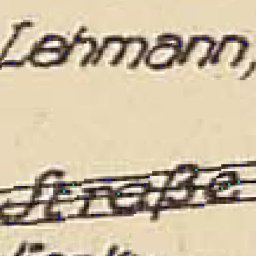 Lehmann,
Straße